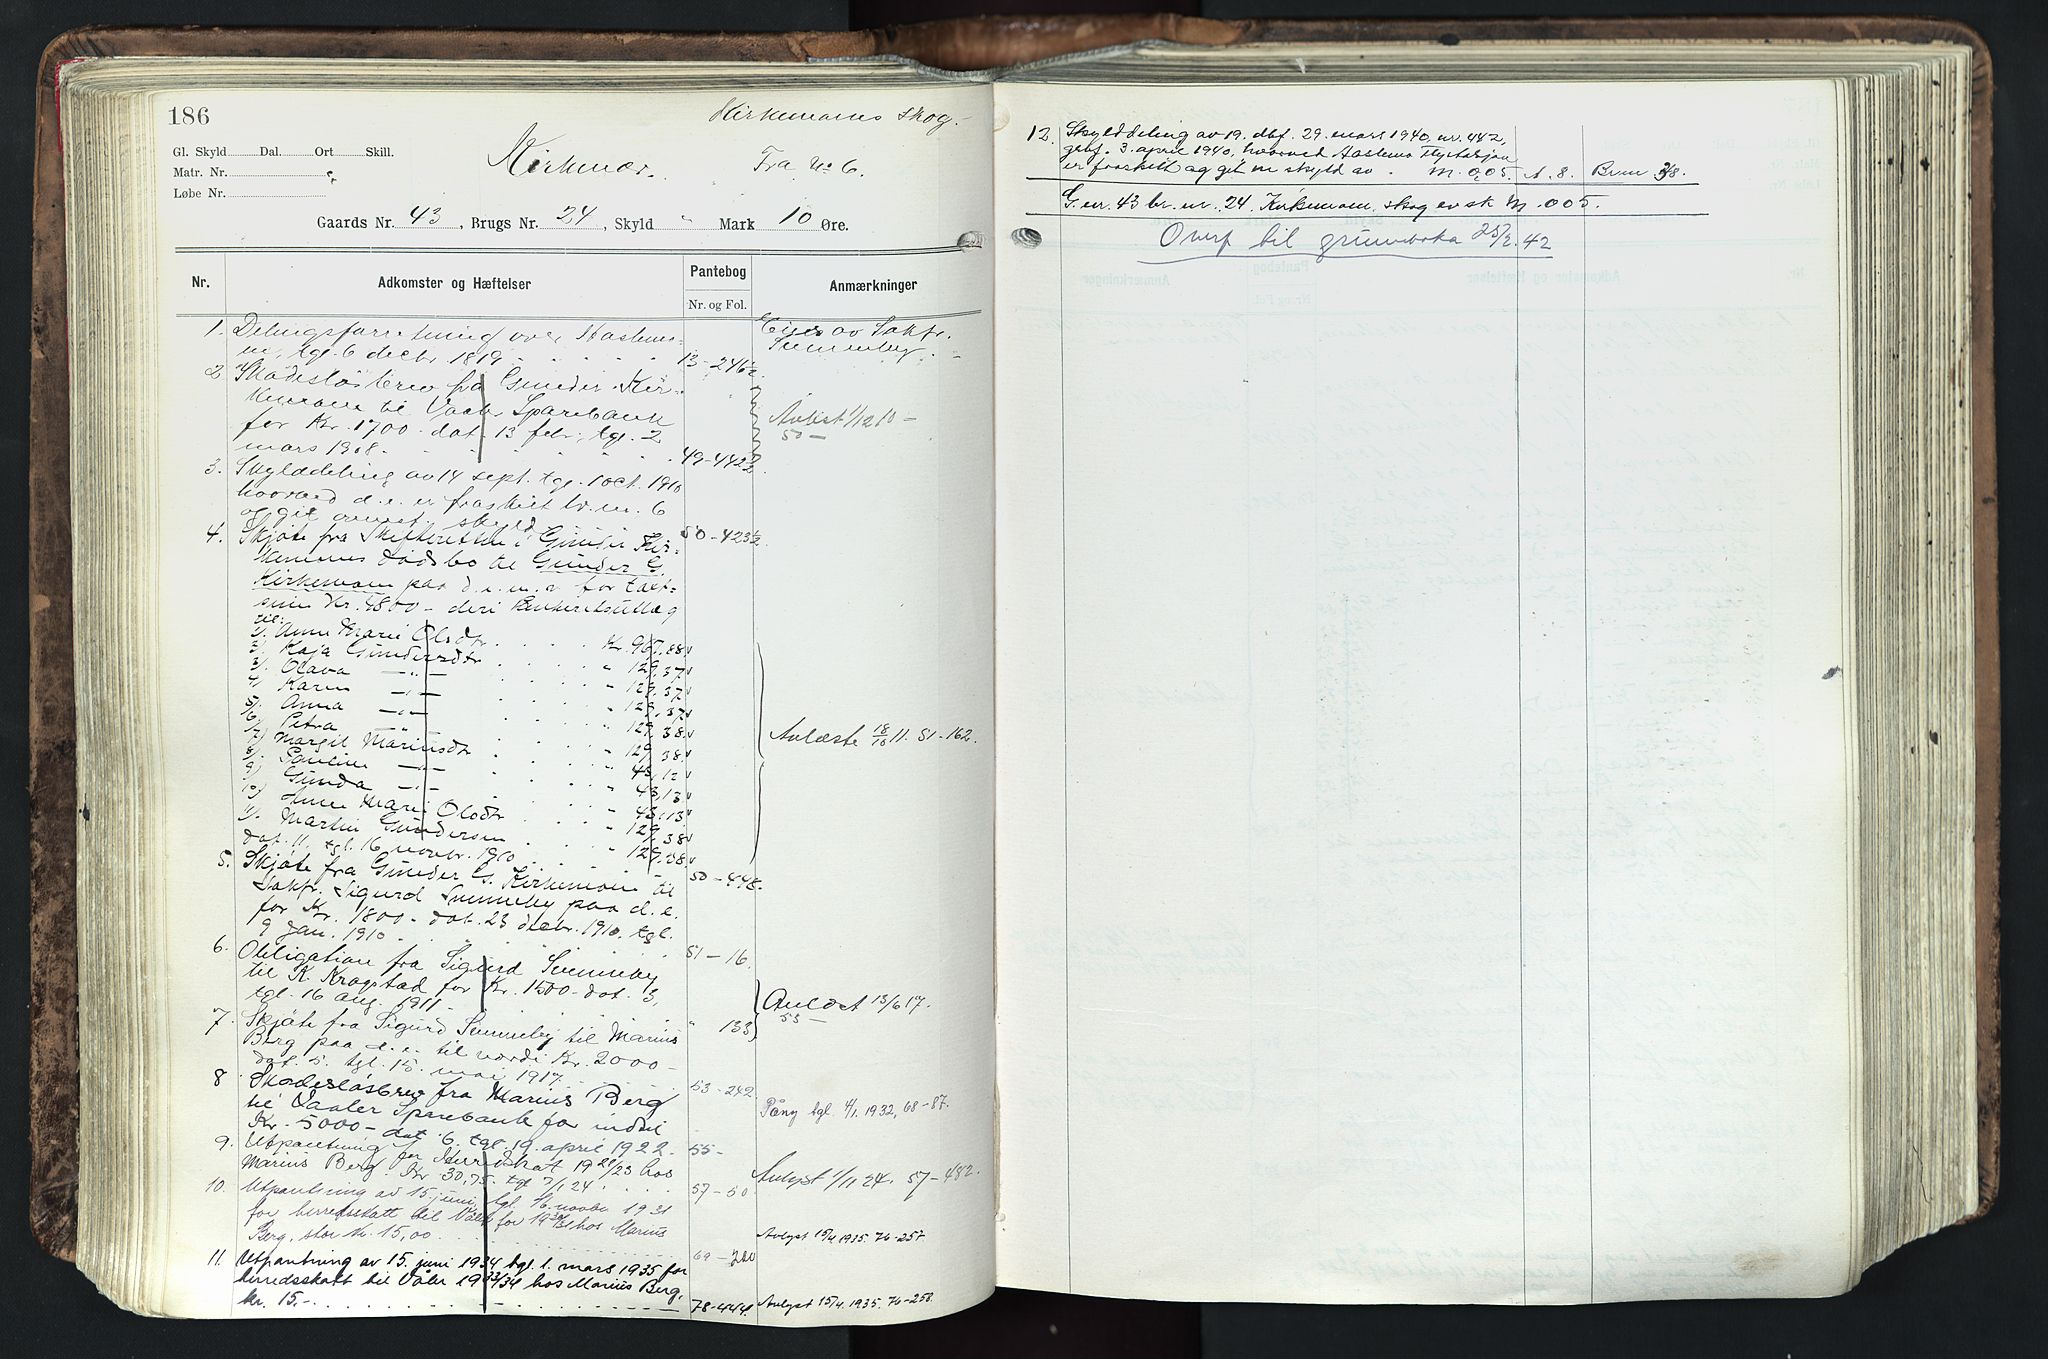 186
Kirkemoens Skog.
Gl. Skyld Dal. Ort Skill.
Matr. Nr.
Løbe Nr.
Kirkemoe. Fra No 6.
Gaards Nr. 43, Brugs Nr. 24, Skyld " Mark 10 Øre.
Nr. Adkomster og Hæftelser Pantebog Anmærkninger
Nr. og Fol.
1. Delingsforretning over Haslemo- Eies av Sakfr.
en, tgl. 6 decbr. 1819 13-246½ Sunneby.
2 Skadesløsbrev fra Gunder Kir-
kemoen til Vaaler Sparebank Avlæst 1/12 10 -
for Kr. 1700 - dat. 13 febr., tgl. 2 50 -
mars 1908. 49-442½
3. Skylddeling av 14 sept. tgl. 1 oct. 1910
hvorved d. e. er fraskilt br. nr. 6
og git anført skyld 50-423½
4. Skjøte fra Skifteretten i Gunder Kir-
kemoens dødsbo til Gunder G.
Kirkemoen paa d. e. m. a for takst-
sum Kr. 4800 - deri Prioritetsutlæg
til:
1). Anne Marie Olsdtr Kr. 967,88
2). Kaja Gundersdtr " 129,37
3). Olava —"— " 129,37
4) Karen —"— " 129,37
5). Anna —"— " 129,38
6). Petra " 129,38
7). Margit Mariusdtr " 43,12 Avlæste 18/10 11. 51-162.
8). Pauline —"— " 43,13
9) Gunda —"— " 43,13
10) Anne Marie Olsdtr " 129,38
11). Martin Gundersen " 129,38
dat. 11. tgl. 16 novbr. 1910 50-448.
5. Skjøte fra Gunder G. Kirkemoen til
Sakfr. Sigurd Sunneby paa d. e.
for Kr. 1800 - dat. 23 decbr. 1910, tgl.
9 Jan. 1910 51-16.
6. Obligation fra Sigurd Sunneby
til K. Kragstad for Kr. 1500 - dat. 3, Avlæst 13/6 17.
tgl. 16 aug. 1911 " 133 53 -
7. Skjøte fra Sigurd Sunneby til Marius
Berg paa d. e. til værdi Kr. 2000 -
dat. 5. tgl. 15. mai 1917. 53-242
8 Skadesløsbrev fra Marius Berg
til Vaaler Sparebank for indtil Påny tgl. 4/1. 1932, 68-87.
Kr. 5000 - dat 6. tgl. 19. april 1922. 55-
9. Utpantning for Herredskat 1922/23 hos
Marius Berg. Kr 30,75. tgl 7/1 24 57-50 Avlyst 1/11 24. 57-482.
10. Utpantning av 15. juni, tgl. 16. novbr. 1931
for herredsskatt til Våler for 1930/31 hos Marius
Berg, stor kr. 15,00 69-200 Avlyst 15/4 1935. 76-257.
11. Utpantning av 15. juni 1934 tgl. 1. mars 1935 for
herredsskatt til Våler 1933/34 hos Marius Berg,
kr. 15,- 78-444. Avlyst 15/4. 1935. 76-258.
12. Skylddeling av 19. dbf. 29. mars 1940, nr. 442,
gebf. 3. april 1940, hvorved Haslemo Flystasjon
er fraskilt og gitt en skyld av . M. 0,05. A. 8. Brnr 38.
G.nr. 43 br. nr. 24 Kirkemoen skog ev sk M. 005.
Overf til grunnboka 25/2. 42